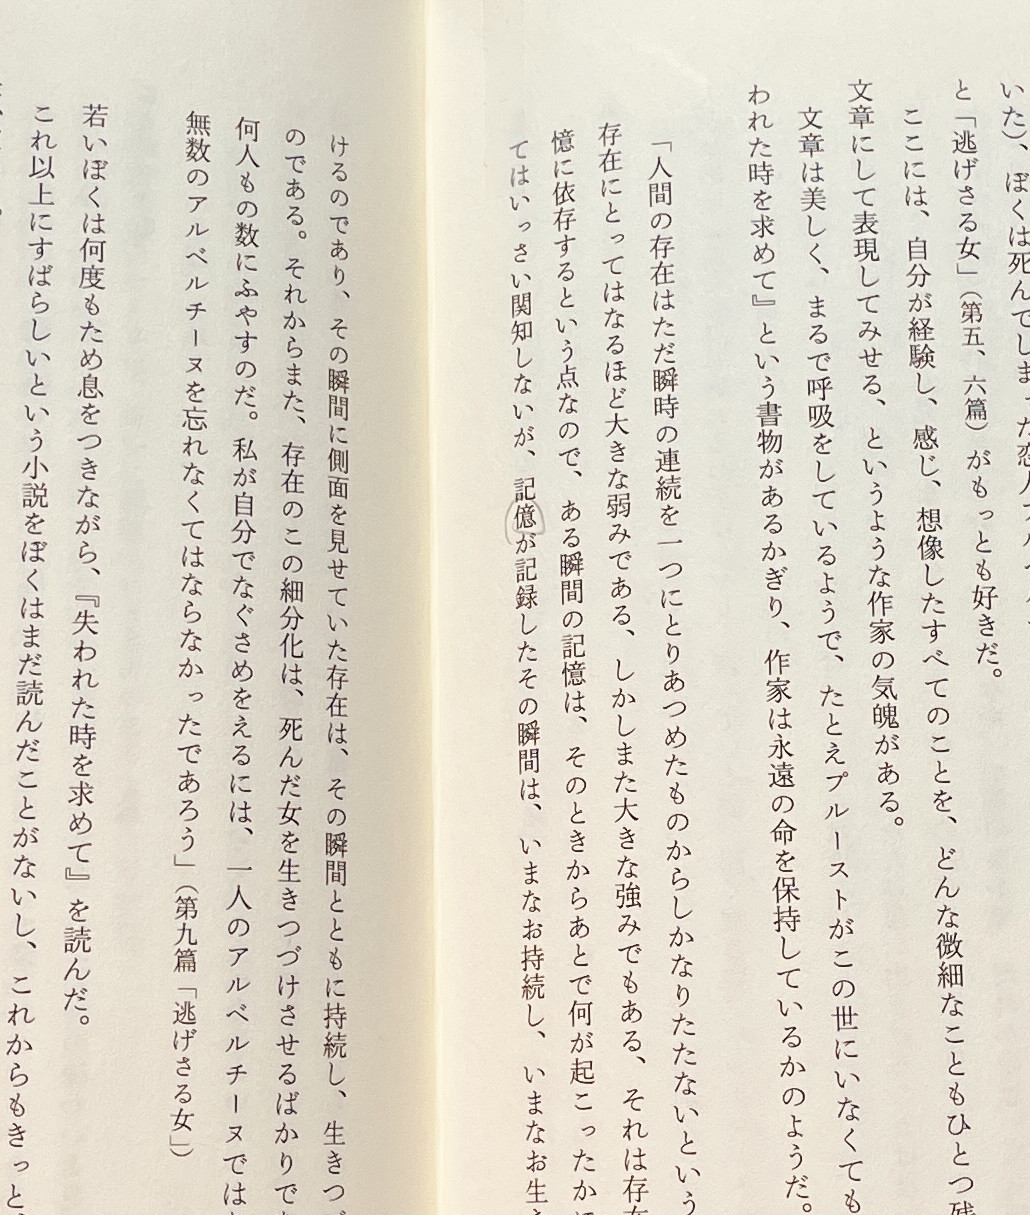 いた）、ぼくは死んでしまった恋人
と「逃げさる女」（第五、六篇）がもっとも好きだ。
ここには、自分が経験し、感じ、想像したすべてのことを、どんな微細なこともひとつ残
文章にして表現してみせる、というような作家の気魄がある。
文章は美しく、まるで呼吸をしているようで、たとえプルーストがこの世にいなくても
われた時を求めて』という書物があるかぎり、作家は永遠の命を保持しているかのようだ。
「人間の存在はただ瞬時の連続を一つにとりあつめたものからしかなりたたないという
存在にとってはなるほど大きな弱みである、しかしまた大きな強みでもある、それは存在
憶に依存するという点なので、ある瞬間の記憶は、そのときからあとで何が起こったかに
てはいっさい関知しないが、記億が記録したその瞬間は、いまなお持続し、いまなお生
けるのであり、その瞬間に側面を見せていた存在は、その瞬間とともに持続し、生きつづ
のである。それからまた、存在のこの細分化は、死んだ女を生きつづけさせるばかりで
何人もの数にふやすのだ。私が自分でなぐさめをえるには、一人のアルベルチーヌでは
無数のアルベルチーヌを忘れなくてはならなかったであろう」（第九篇「逃げさる女」）
若いぼくは何度もため息をつきながら、『失われた時を求めて』を読んだ。
これ以上にすばらしいという小説をぼくはまだ読んだことがないし、これからもきっと